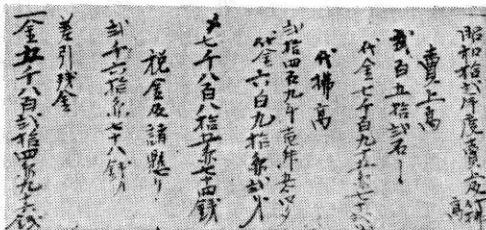 昭和拾弐年度賣
高
賣上高
弐百五拾弐石
代金七千百九拾五円七十
代拂高
弐拾四石九斗壱升
代金六百九拾
〆七千八百八拾五円七十四銭
税金及諸懸り
弐千六拾円七十八銭
差引残金
一金五千八百弐拾四円九十六銭